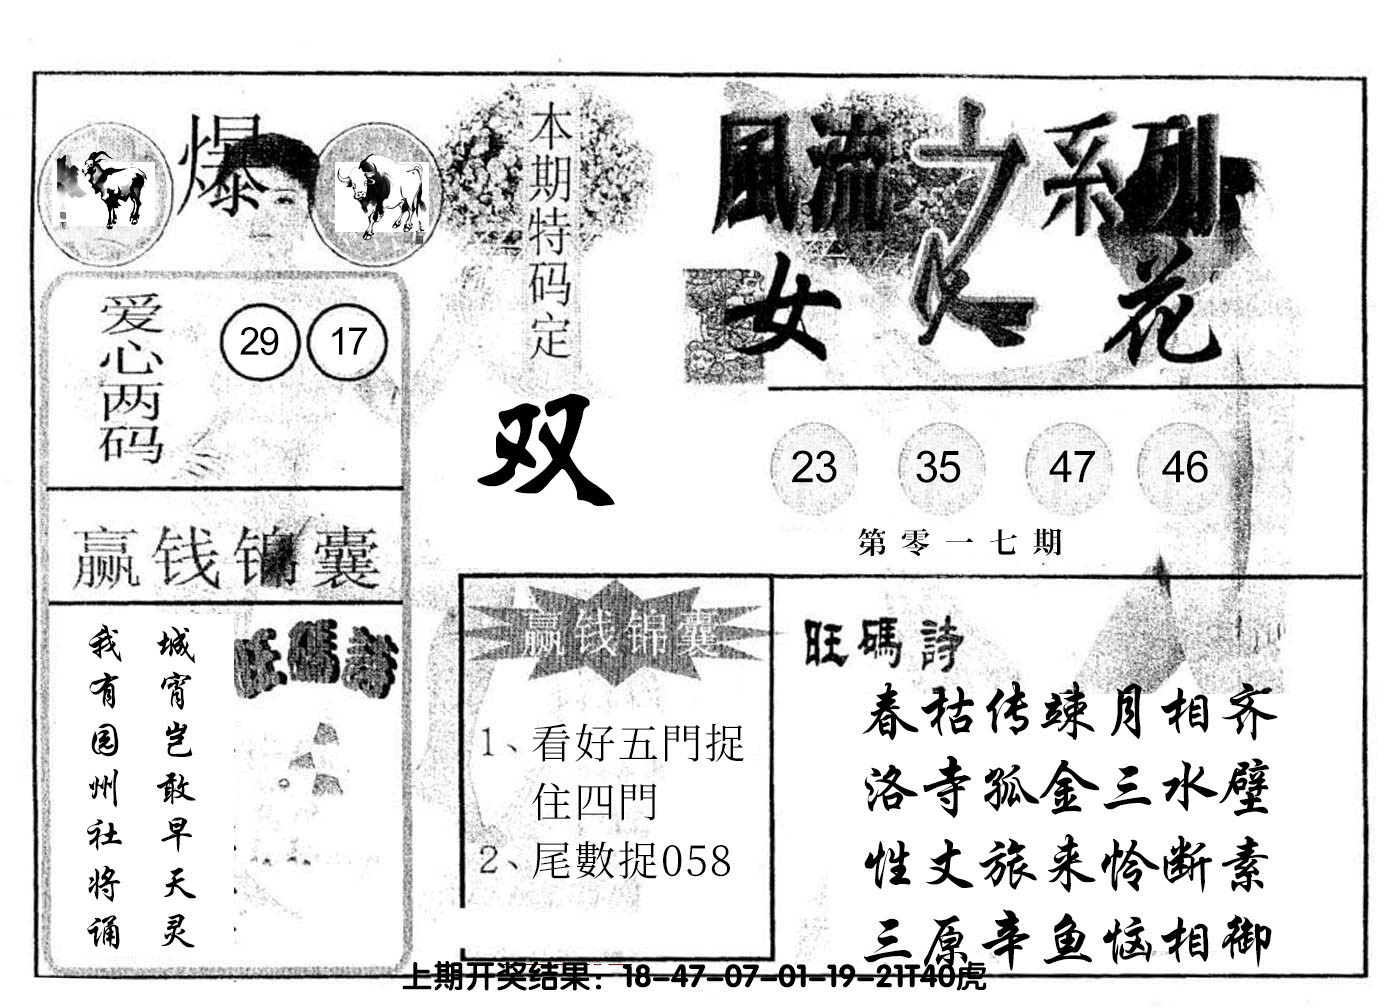 爆
本期特码定
双
風流之系列
女人花
爱心两码
29 17
23 35 47 46
第零一七期
赢钱锦囊
城宵岂敢早天灵
我有园州社将诵
旺碼詩
赢钱锦囊
1、看好五門捉
住四門
2、尾數捉058
旺碼詩
春枯传竦月相齐
洛寺孤金三水壁
性丈旅来怜断素
三原辛鱼恼相御
上期开奖结果：18-47-07-01-19-21T40虎